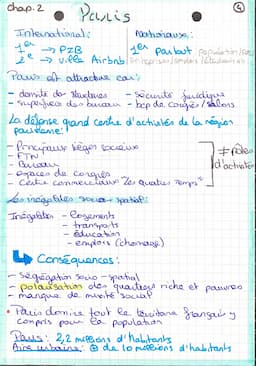 chap. 2
Paris
④
International:
National:
1er → PIB
1er Partout population/
2e → ville Airbnb
entreprises/services/étudiants
Paris est attractive car:
- domite de structures - sécurité juridique
- superficie des bureaux - bcp de congrès/salons
La défense grand centre d'activités de la région
parisienne:
- Principaux sièges sociaux
- FTN
- Bureaux
- espaces de congrès
- Centre commerciaux "Les quatres temps"
≠ pôles
d'activités
Les inégalités socio-spatial:
Inégalités - logements
- transports
- éducation
- emplois (chomage)
Conséquences:
- ségrégation socio-spatial
- polarisation des quartiers riche et pauvres
- manque de mixité social
• Paris domine tout le territoire français y
compris pour la population
Paris: 2,2 millions d'habitants
Aire urbaine: ⊕ de 10 millions d'habitants